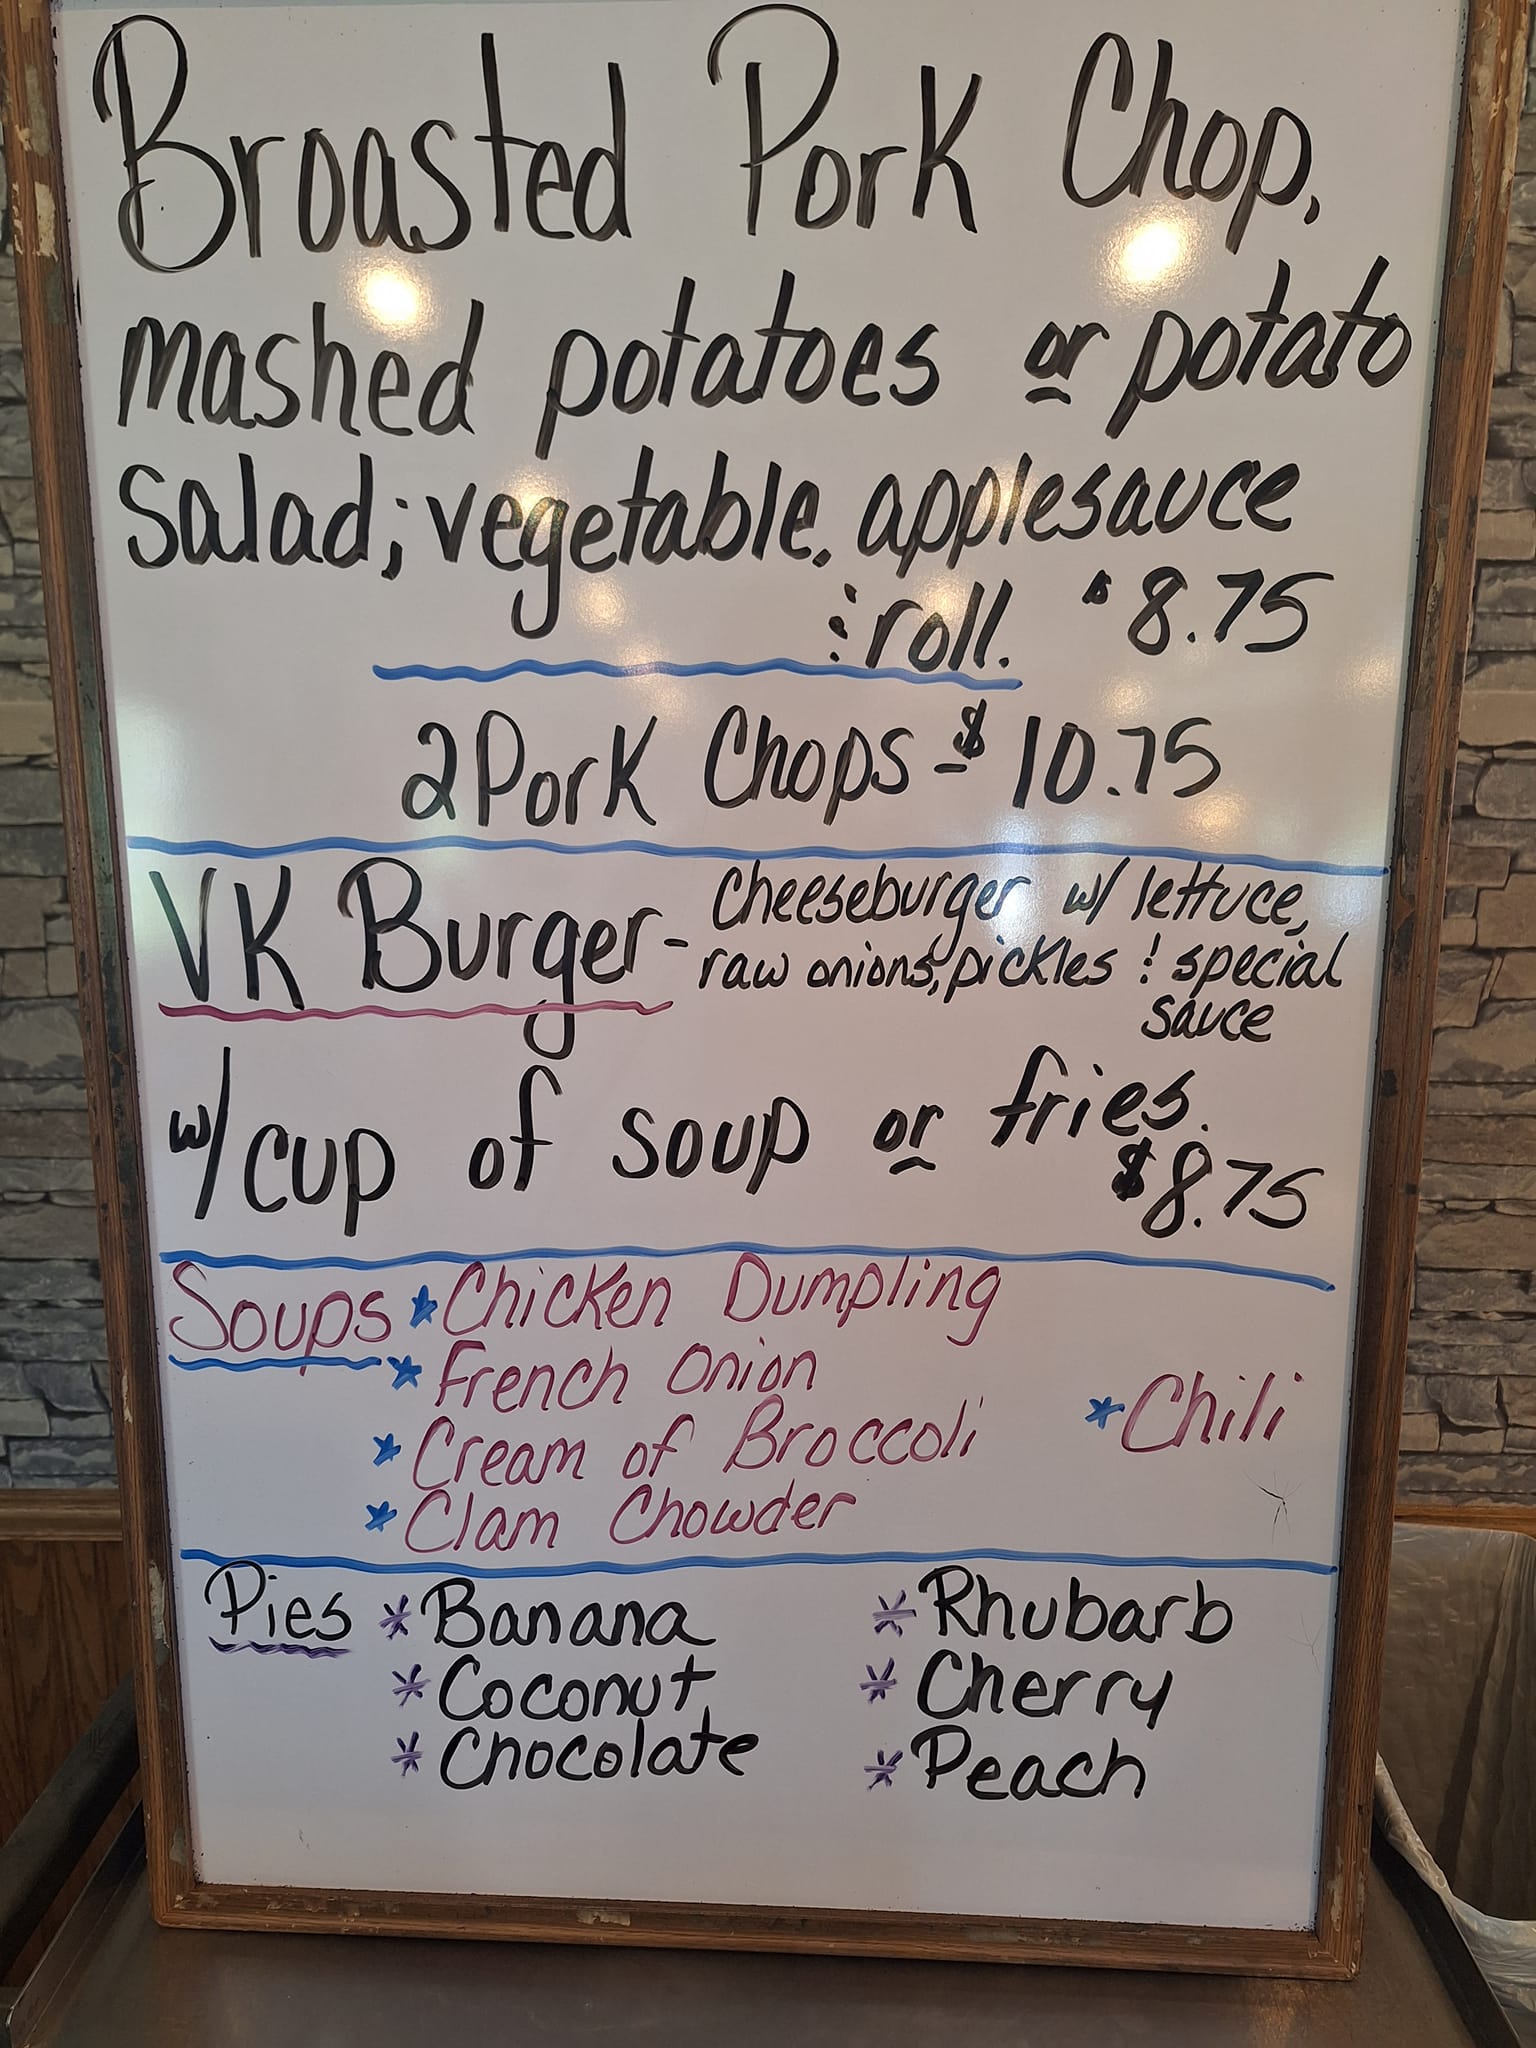 Broasted Pork Chop,
mashed potatoes or potato
salad; vegetable, applesauce
: roll. $8.75
2 Pork Chops - $10.75
VK Burger - Cheeseburger w/ lettuce,
raw onions, pickles ! special
sauce
w/ cup of soup or fries.
$8.75
Soups * Chicken Dumpling
* French Onion
* Chili
* Cream of Broccoli
* Clam Chowder
Pies * Banana * Rhubarb
* Coconut * Cherry
* Chocolate * Peach